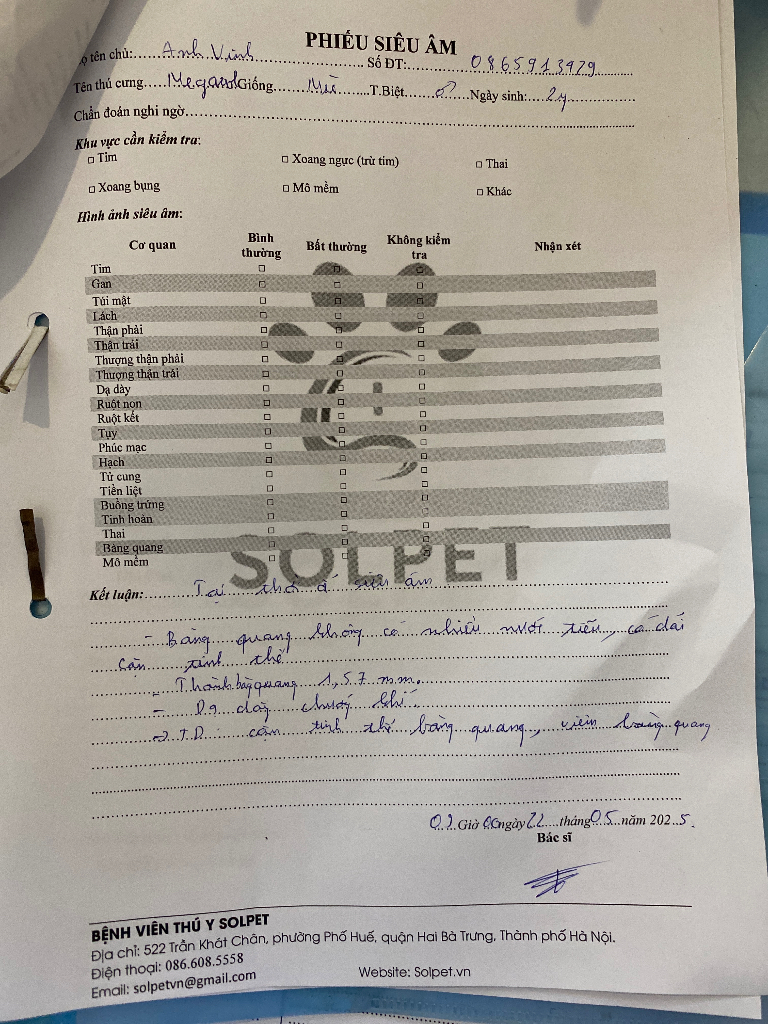 PHIẾU SIÊU ÂM
ọ tên chủ:.....Anh Vinh.....Số ĐT:.....0865913979
Tên thú cưng.....Giống.....Mèo.....T.Biệt...♂...Ngày sinh:...2y
Chẩn đoán nghi ngờ
Khu vực cần kiểm tra:
□ Tim □ Xoang ngực (trừ tim) □ Thai
□ Xoang bụng □ Mô mềm □ Khác
Hình ảnh siêu âm:
Cơ quan Bình thường Bất thường Không kiểm tra Nhận xét
Tim □ □ □
Gan □ □ □
Túi mật □ □ □
Lách □ □ □
Thận phải □ □ □
Thận trái □ □ □
Thượng thận phải □ □ □
Thượng thận trái □ □ □
Dạ dày □ □ □
Ruột non □ □ □
Ruột kết □ □ □
Tụy □ □ □
Phúc mạc □ □ □
Hạch □ □ □
Tử cung □ □ □
Tiền liệt □ □ □
Buồng trứng □ □ □
Tinh hoàn □ □ □
Thai □ □ □
Bàng quang □ □ □
Mô mềm □ □ □
SOLPET
Kết luận: Tại thời siêu âm
- Bàng quang không có nhiều nước tiểu, có dải
cặn tinh thể
- Thành bàng quang 1,57 mm.
- Dạ dày chướng khí.
=> TD: cặn tinh thể bàng quang, viêm bàng quang
Giờ ngày 22 tháng 05 năm 2025.
Bác sĩ
BỆNH VIỆN THÚ Y SOLPET
Địa chỉ: 522 Trần Khát Chân, phường Phố Huế, quận Hai Bà Trưng, Thành phố Hà Nội.
Điện thoại: 086.608.5558 Website: Solpet.vn
Email: solpetvn@gmail.com